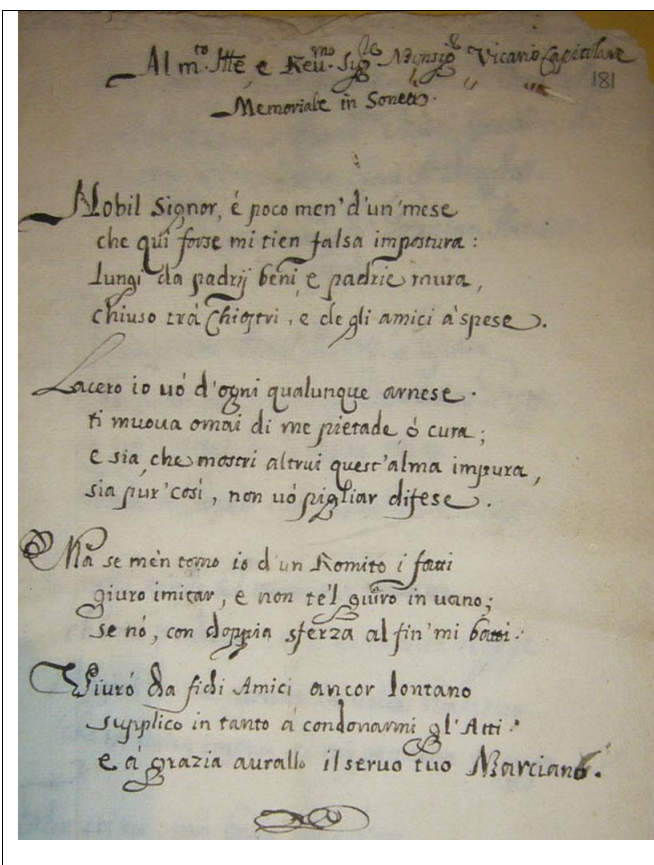 Al m.to Ill.e, e Reu.mo Sig.re Monsig.r Vicario Capitolare
181
Memoriale in Sonetto.
Nobil Signor, é poco men' d'un' mese
che qui forse mi tien falsa impostura:
Lungi da padrij beni, e padrie mura,
chiuso trá Chiostri, e de gli amici á spese.
Lacero io uó d'ogni qualunque arnese.
ti muoua omai di me pietade, ó cura;
e sia, che mostri altrui quest'alma impura,
sia pur' cosí, non uó pigliar difese.
Má se mén torno io d'un Romito i fatti
giuro imitar, e non te'l giuro in uano;
se nó, con doppia sferza al fin' mi batti:
Viuró da fichi Amici ancor lontano
supplico in tanto á condonarmi gl'Atti:
e á grazia aurallo il seruo tuo Marciano.